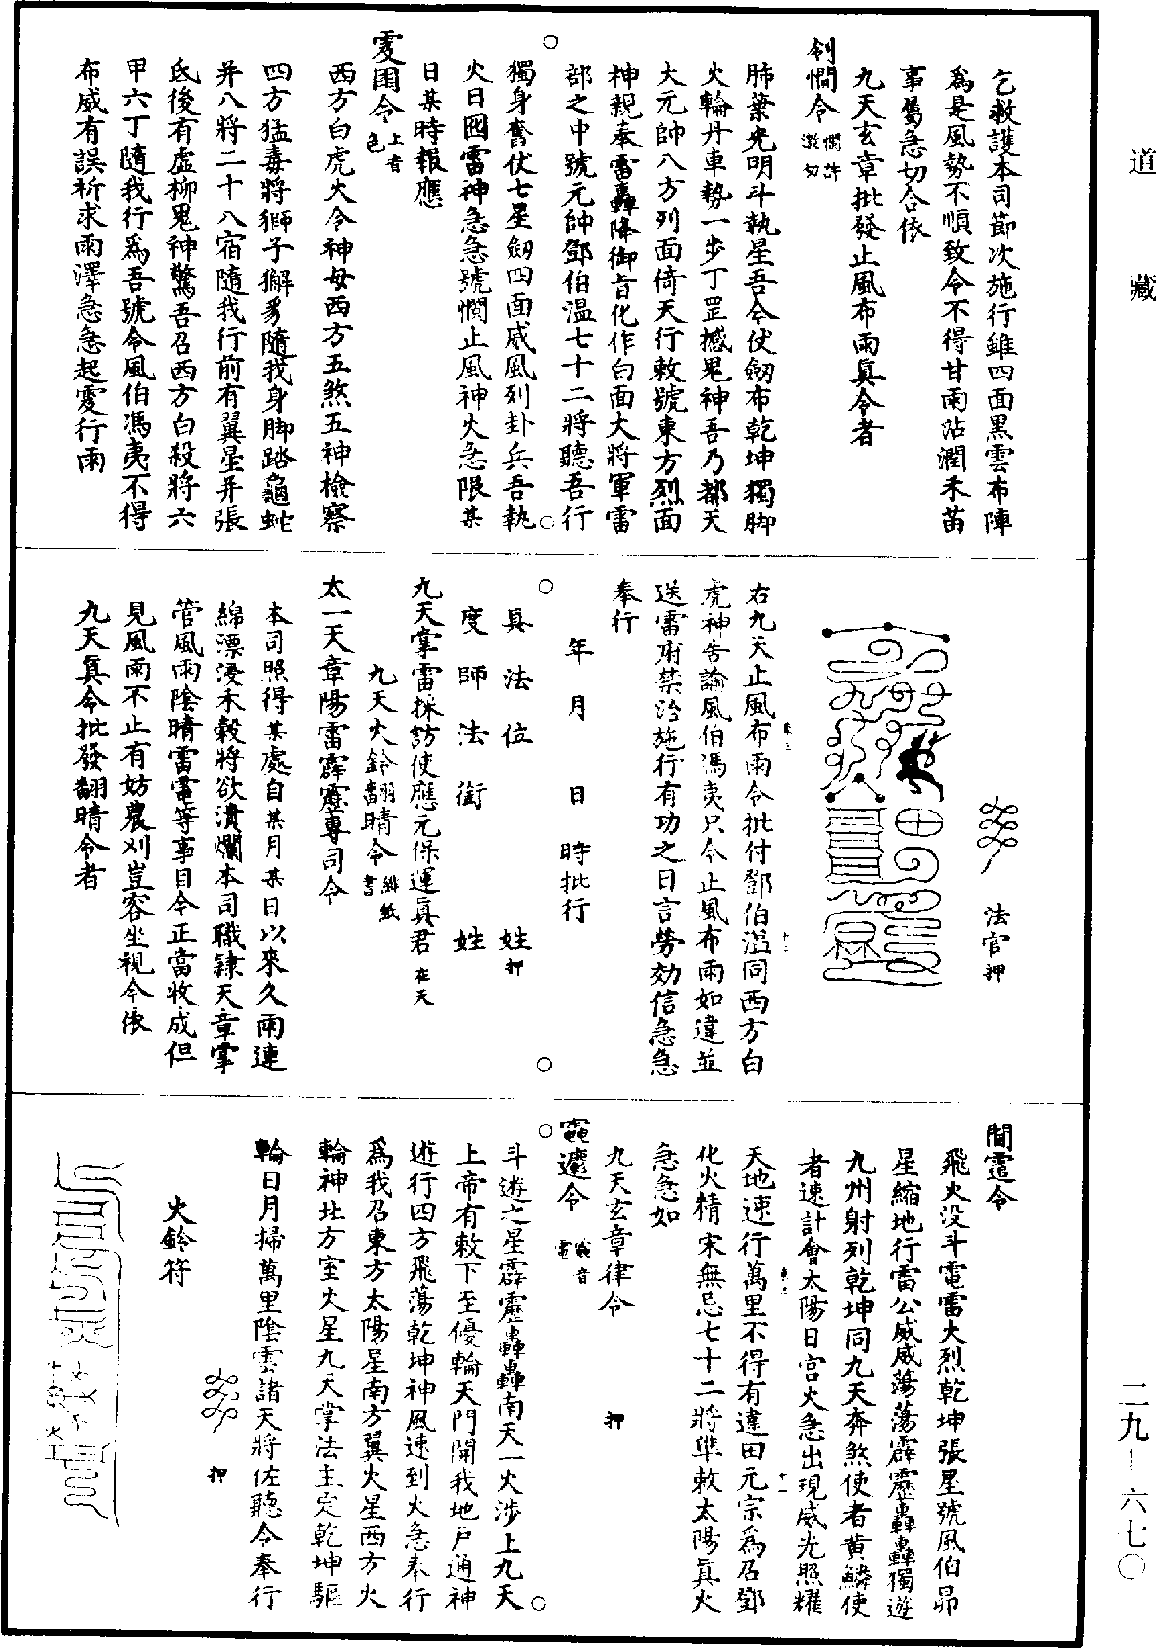 道藏
乞救護本司節次施行雖四面黑雲布陣
為是風勢不順致令不得甘雨沾潤禾苗
事屬急切合依
九天玄章批發止風布雨眞令者
憪令
肺葉光明斗執星吾令仗劒布乾坤獨脚
火輪丹車勢一步丁罡撼鬼神吾乃都天
大元帥八方列面倚天行敕號東方烈面
神親奉雷轟降御旨化作白面大將軍雷
部之中號元帥鄧伯溫七十二將聽吾行
獨身奮仗七星劒四面威風列卦兵吾執
火日囦雷神急急號憪止風神火急限某
日某時報應
令上音色
西方白虎火令神母西方五煞五神檢察
四方猛毒將獅子獬豸隨我身脚踏龜蛇
并八將二十八宿隨我行前有翼星并張
氐後有虛柳鬼神驚吾召西方白殺將六
甲六丁隨我行爲吾號令風伯馮夷不得
布威有誤祈求雨澤急急起霎行雨
法官押
右九天止風布雨令批付鄧伯溫同西方白
虎神告諭風伯馮夷只今止風布雨如違並
送雷府禁治施行有功之日言勞効信急急
奉行
年月日時批行
具法位姓押
度師法銜姓
九天掌雷採訪使應元保運眞君在天
九天火鈴翻晴令緋紙書
太一天章陽雷霹靂專司令
本司照得某處自某月某日以來久雨連
綿漂浸禾穀將欲潰爛本司職隷天章掌
管風雨陰晴雷電等事目今正當收成但
見風雨不止有妨農刈豈容坐視今依
九天眞令批發翻晴令者
令
飛火没斗電雷大烈乾坤張星號風伯昴
星縮地行雷公威威蕩蕩霹靂轟轟獨遊
九州射列乾坤同九天奔煞使者黄鱗使
者速計會太陽日宫火急出現威光照耀
天地速行萬里不得有違田元宗爲召鄧
化火精宋無忌七十二將準敕太陽眞火
急急如
九天玄章律令押
令
斗遊之星霹靂轟轟南天一火涉上九天
上帝有敕下至優輪天門開我地户通神
遊行四方飛蕩乾坤神風速到火急奉行
爲我召東方太陽星南方翼火星西方火
輪神北方室火星九天掌法主定乾坤驅
輪日月掃萬里陰雲諸天將佐聽令奉行
押
火鈴符
二九—六七〇